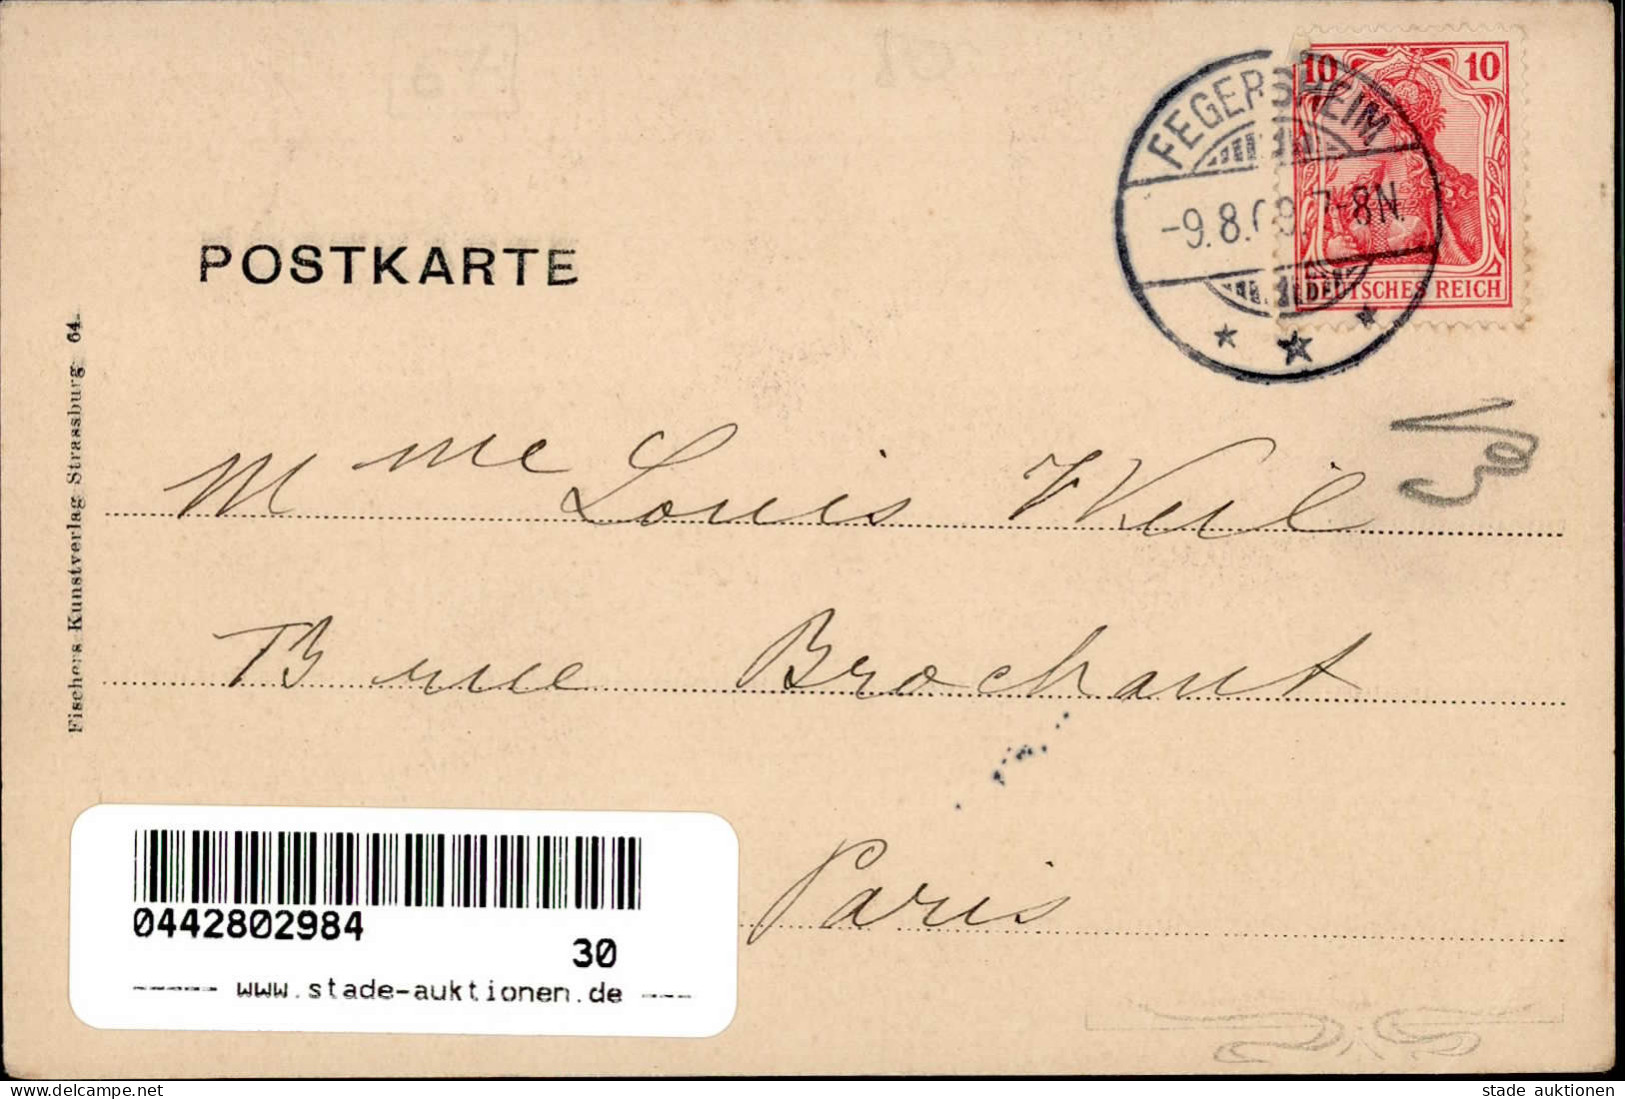 POSTKARTE
FEGERSHEIM
-9.8.08. 7-8N.
10 10
DEUTSCHES REICH
Fischers Kunstverlag Strassburg 64.
Mme Louis Weil
13 rue Brochant
Paris
0442802984
30
www.stade-auktionen.de
www.delcampe.net
stade auktionen